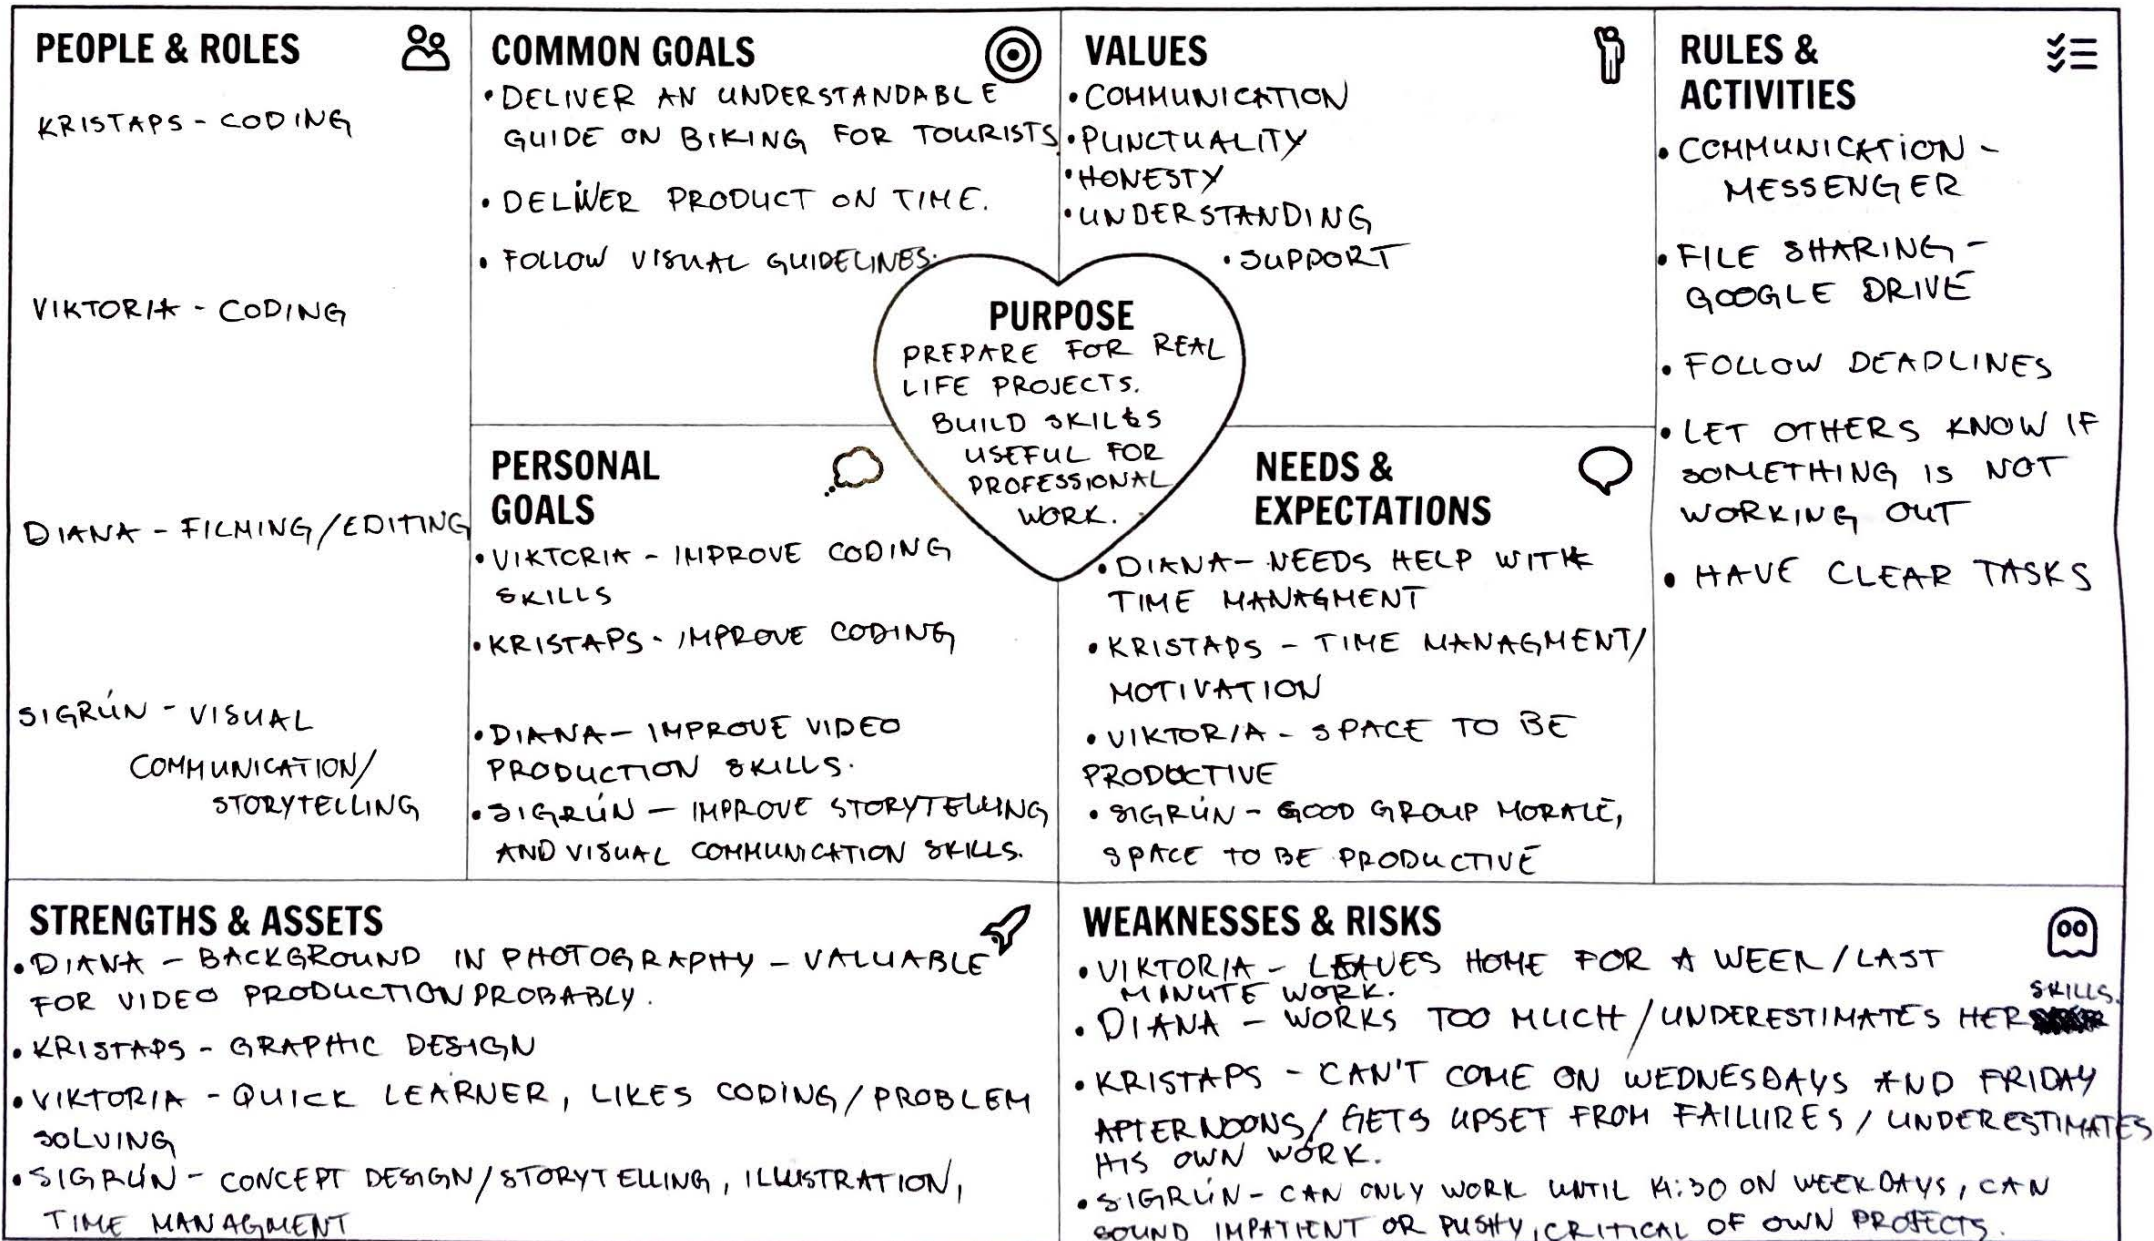 PEOPLE & ROLES
KRISTAPS - CODING
VIKTORIA - CODING
DIANA - FILMING/EDITING
SIGRÚN - VISUAL
COMMUNICATION/
STORYTELLING
COMMON GOALS
• DELIVER AN UNDERSTANDABLE
GUIDE ON BIKING FOR TOURISTS
• DELIVER PRODUCT ON TIME.
• FOLLOW VISUAL GUIDELINES.
VALUES
• COMMUNICATION
• PUNCTUALITY
• HONESTY
• UNDERSTANDING
• SUPPORT
RULES &
ACTIVITIES
• COMMUNICATION -
MESSENGER
• FILE SHARING -
GOOGLE DRIVE
• FOLLOW DEADLINES
• LET OTHERS KNOW IF
SOMETHING IS NOT
WORKING OUT
• HAVE CLEAR TASKS
PURPOSE
PREPARE FOR REAL
LIFE PROJECTS.
BUILD SKILLS
USEFUL FOR
PROFESSIONAL
WORK.
PERSONAL
GOALS
• VIKTORIA - IMPROVE CODING
SKILLS
• KRISTAPS - IMPROVE CODING
• DIANA - IMPROVE VIDEO
PRODUCTION SKILLS.
• SIGRÚN - IMPROVE STORYTELLING
AND VISUAL COMMUNICATION SKILLS.
NEEDS &
EXPECTATIONS
• DIANA - NEEDS HELP WITH
TIME MANAGMENT
• KRISTAPS - TIME MANAGMENT/
MOTIVATION
• VIKTORIA - SPACE TO BE
PRODUCTIVE
• SIGRÚN - GOOD GROUP MORALE,
SPACE TO BE PRODUCTIVE
STRENGTHS & ASSETS
• DIANA - BACKGROUND IN PHOTOGRAPHY - VALUABLE
FOR VIDEO PRODUCTION PROBABLY.
• KRISTAPS - GRAPHIC DESIGN
• VIKTORIA - QUICK LEARNER, LIKES CODING/PROBLEM
SOLVING
• SIGRÚN - CONCEPT DESIGN/STORYTELLING, ILLUSTRATION,
TIME MANAGMENT
WEAKNESSES & RISKS
• VIKTORIA - LEAVES HOME FOR A WEEK/LAST
MINUTE WORK.
• DIANA - WORKS TOO MUCH/UNDERESTIMATES HER SKILLS.
• KRISTAPS - CAN'T COME ON WEDNESDAYS AND FRIDAY
AFTERNOONS/GETS UPSET FROM FAILURES/UNDERESTIMATES
HIS OWN WORK.
• SIGRÚN - CAN ONLY WORK UNTIL 14:30 ON WEEKDAYS, CAN
SOUND IMPATIENT OR PUSHY, CRITICAL OF OWN PROJECTS.